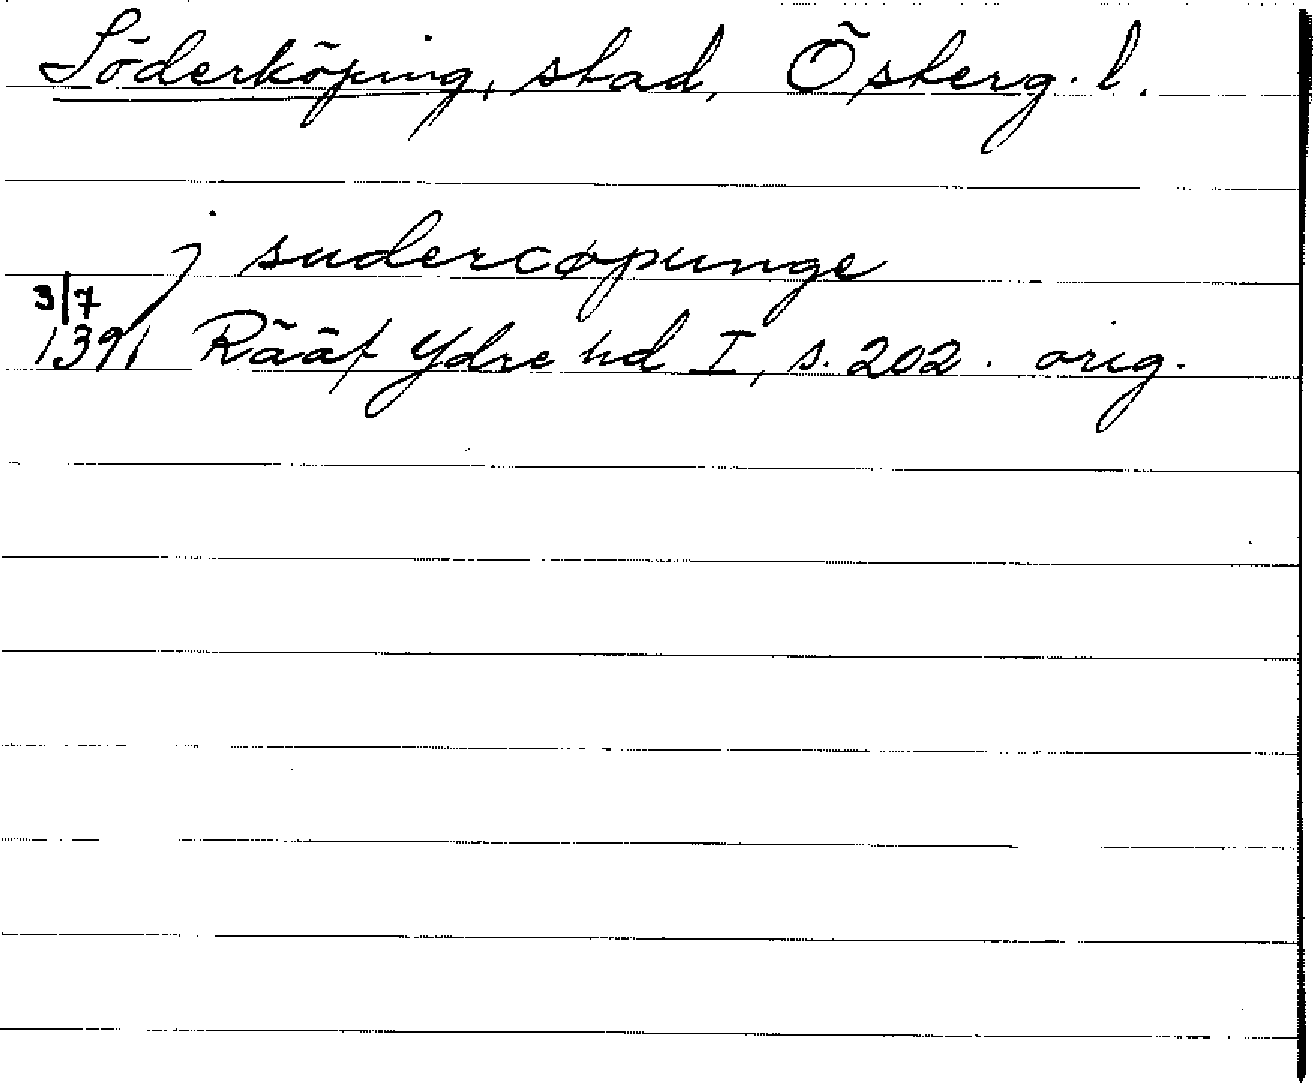 Söderköping, stad, Österg. l.
j sudercøpunge
3/7
1391 Rääf Ydre hd I, s. 202. orig.